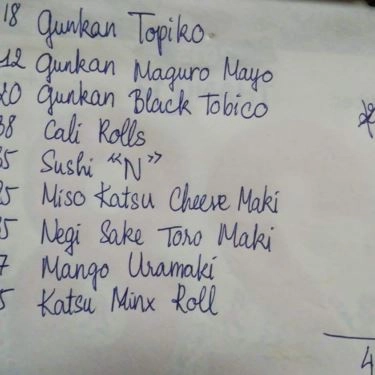 18 Gunkan Topiko
12 Gunkan Maguro Mayo
20 Gunkan Black Tobico
38 Cali Rolls
35 Sushi "N"
25 Miso Katsu Cheese Maki
35 Negi Sake Toro Maki
7 Mango Uramaki
5 Katsu Minx Roll
4